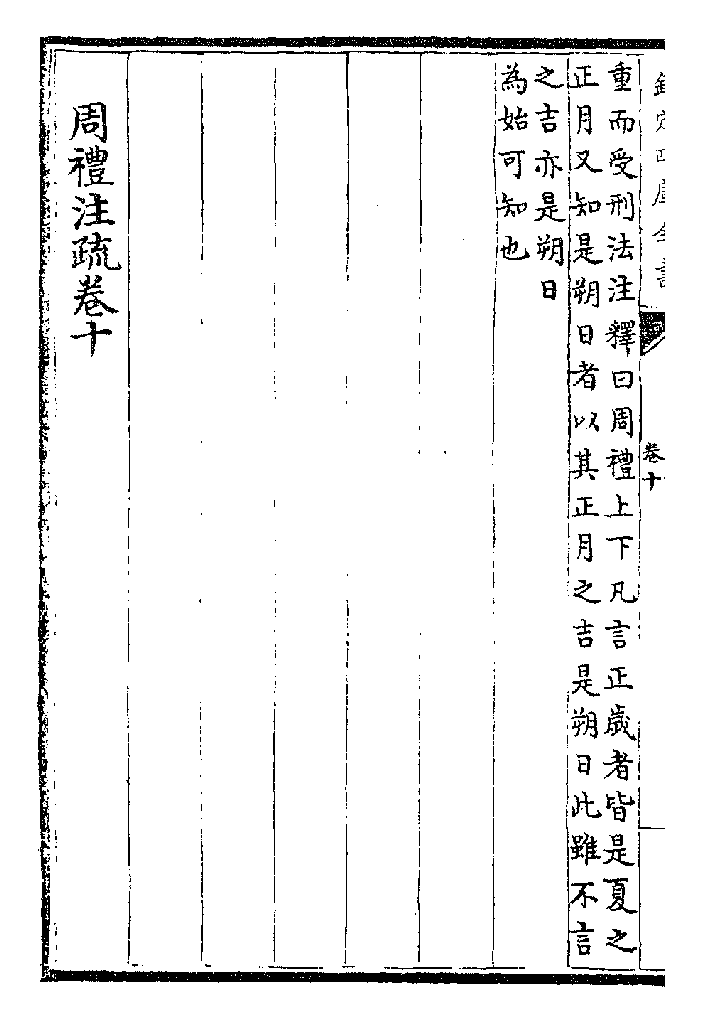 欽定四庫全書
卷十
重而受刑法注釋曰周禮上下凡言正歲者皆是夏之
正月又知是朔日者以其正月之吉是朔日此雖不言
之吉亦是朔日
為始可知也
周禮注疏卷十